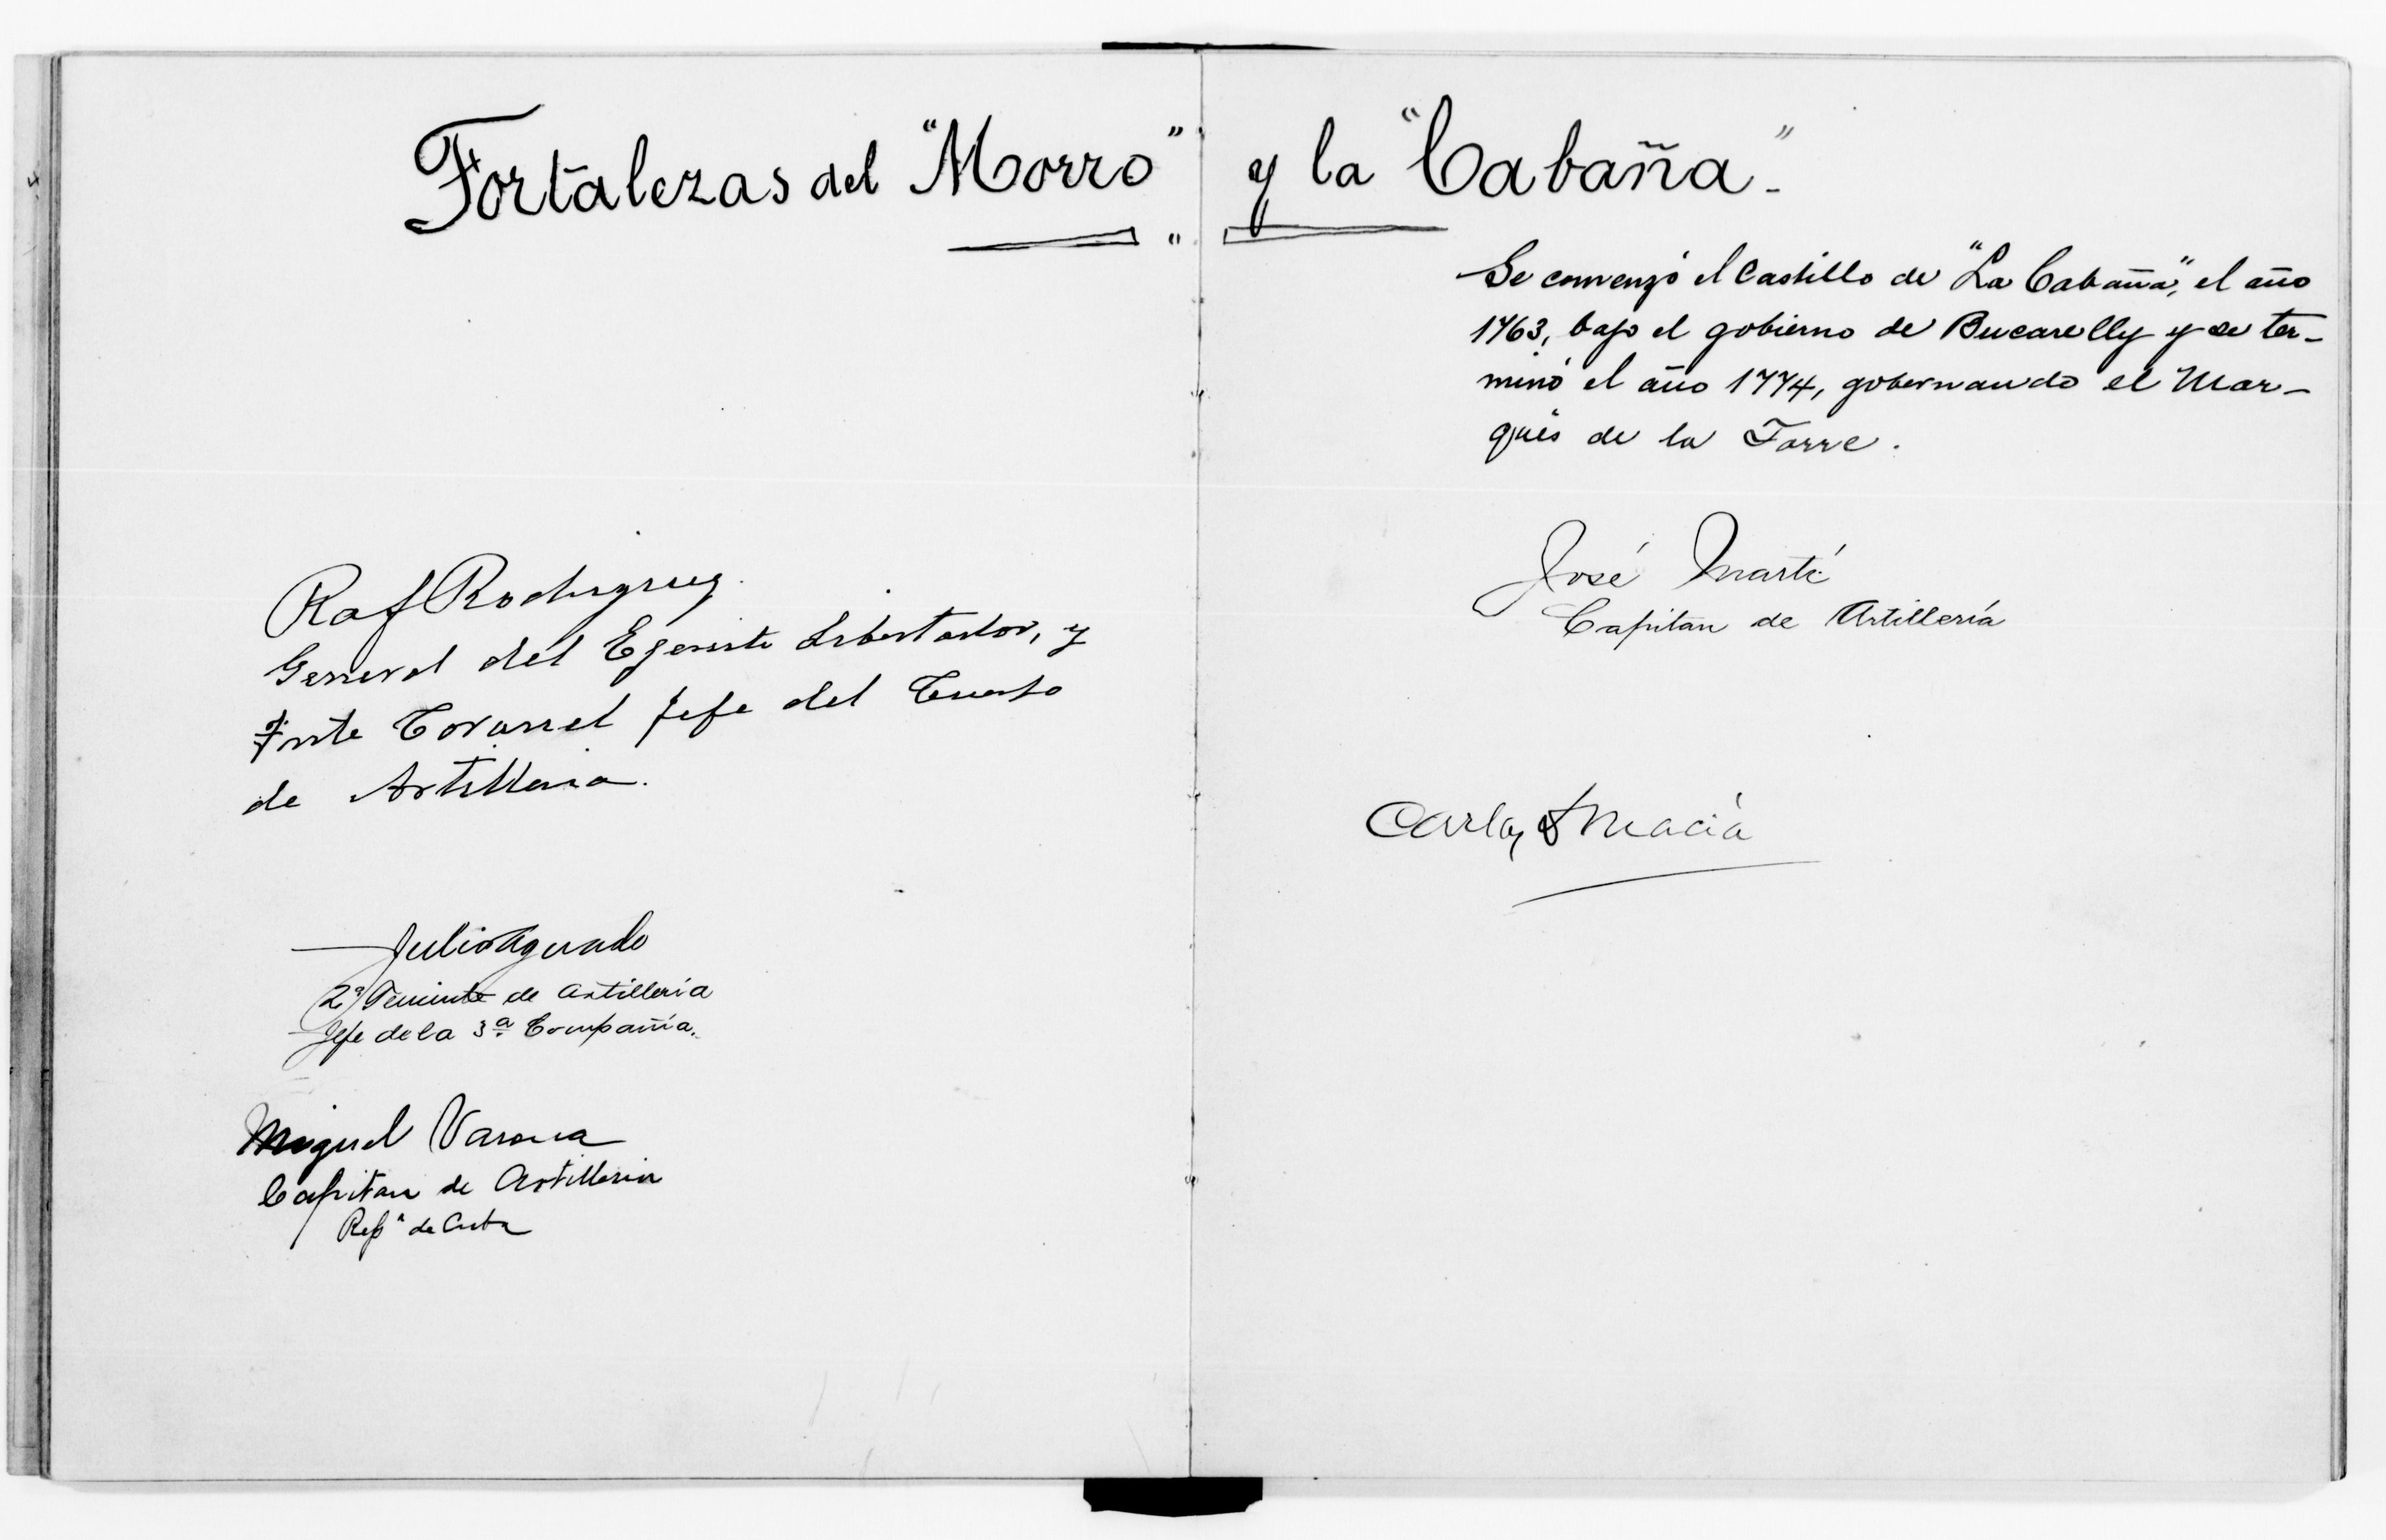 Fortalezas del "Morro" y la "Cabaña"-
Raf Rodriguez.
General del Egercito Libertador, y
Tnte Coronel Jefe del Cuerpo
de Artilleria.
Julio Aguado
2º Teniente de Artillería
Jefe de la 3ª Compañía.
Miguel Varona
Capitan de Artilleria
Repª de Cuba
Se comenzó el Castillo de "La Cabaña", el año
1763, bajo el gobierno de Bucarelly y se ter-
minó el año 1774, gobernando el Mar-
qués de la Torre.
José Martí
Capitan de Artillería
Carlos Macía